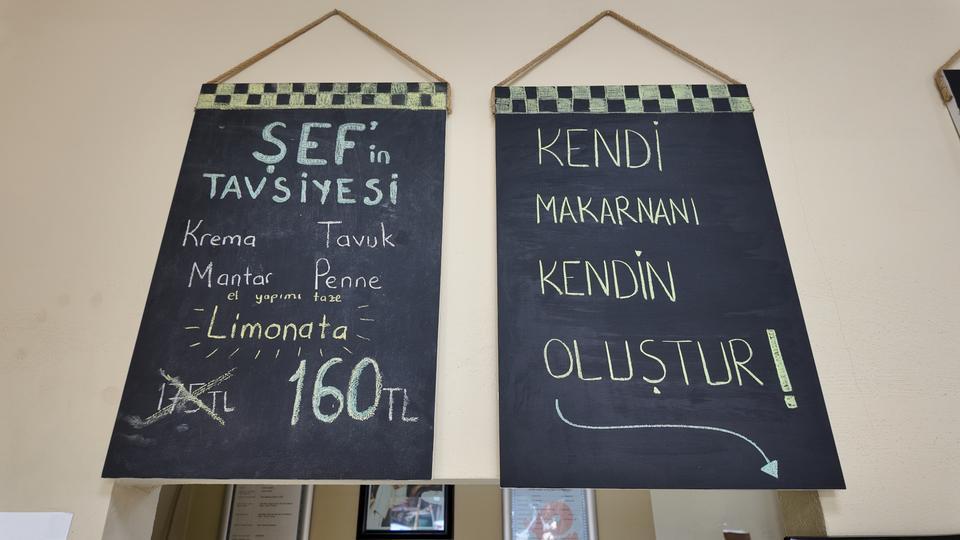 ŞEF'in
TAVSİYESİ
Krema Tavuk
Mantar Penne
el yapımı taze
Limonata
175TL 160TL
KENDİ
MAKARNANI
KENDİN
OLUŞTUR!